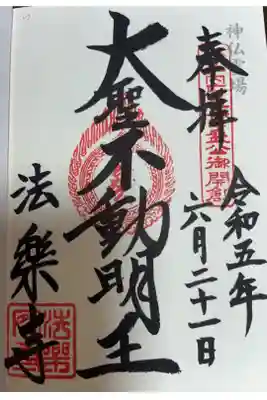 神仏霊場
奉拝
令和五年
六月二十一日
大聖不動明王
法樂寺